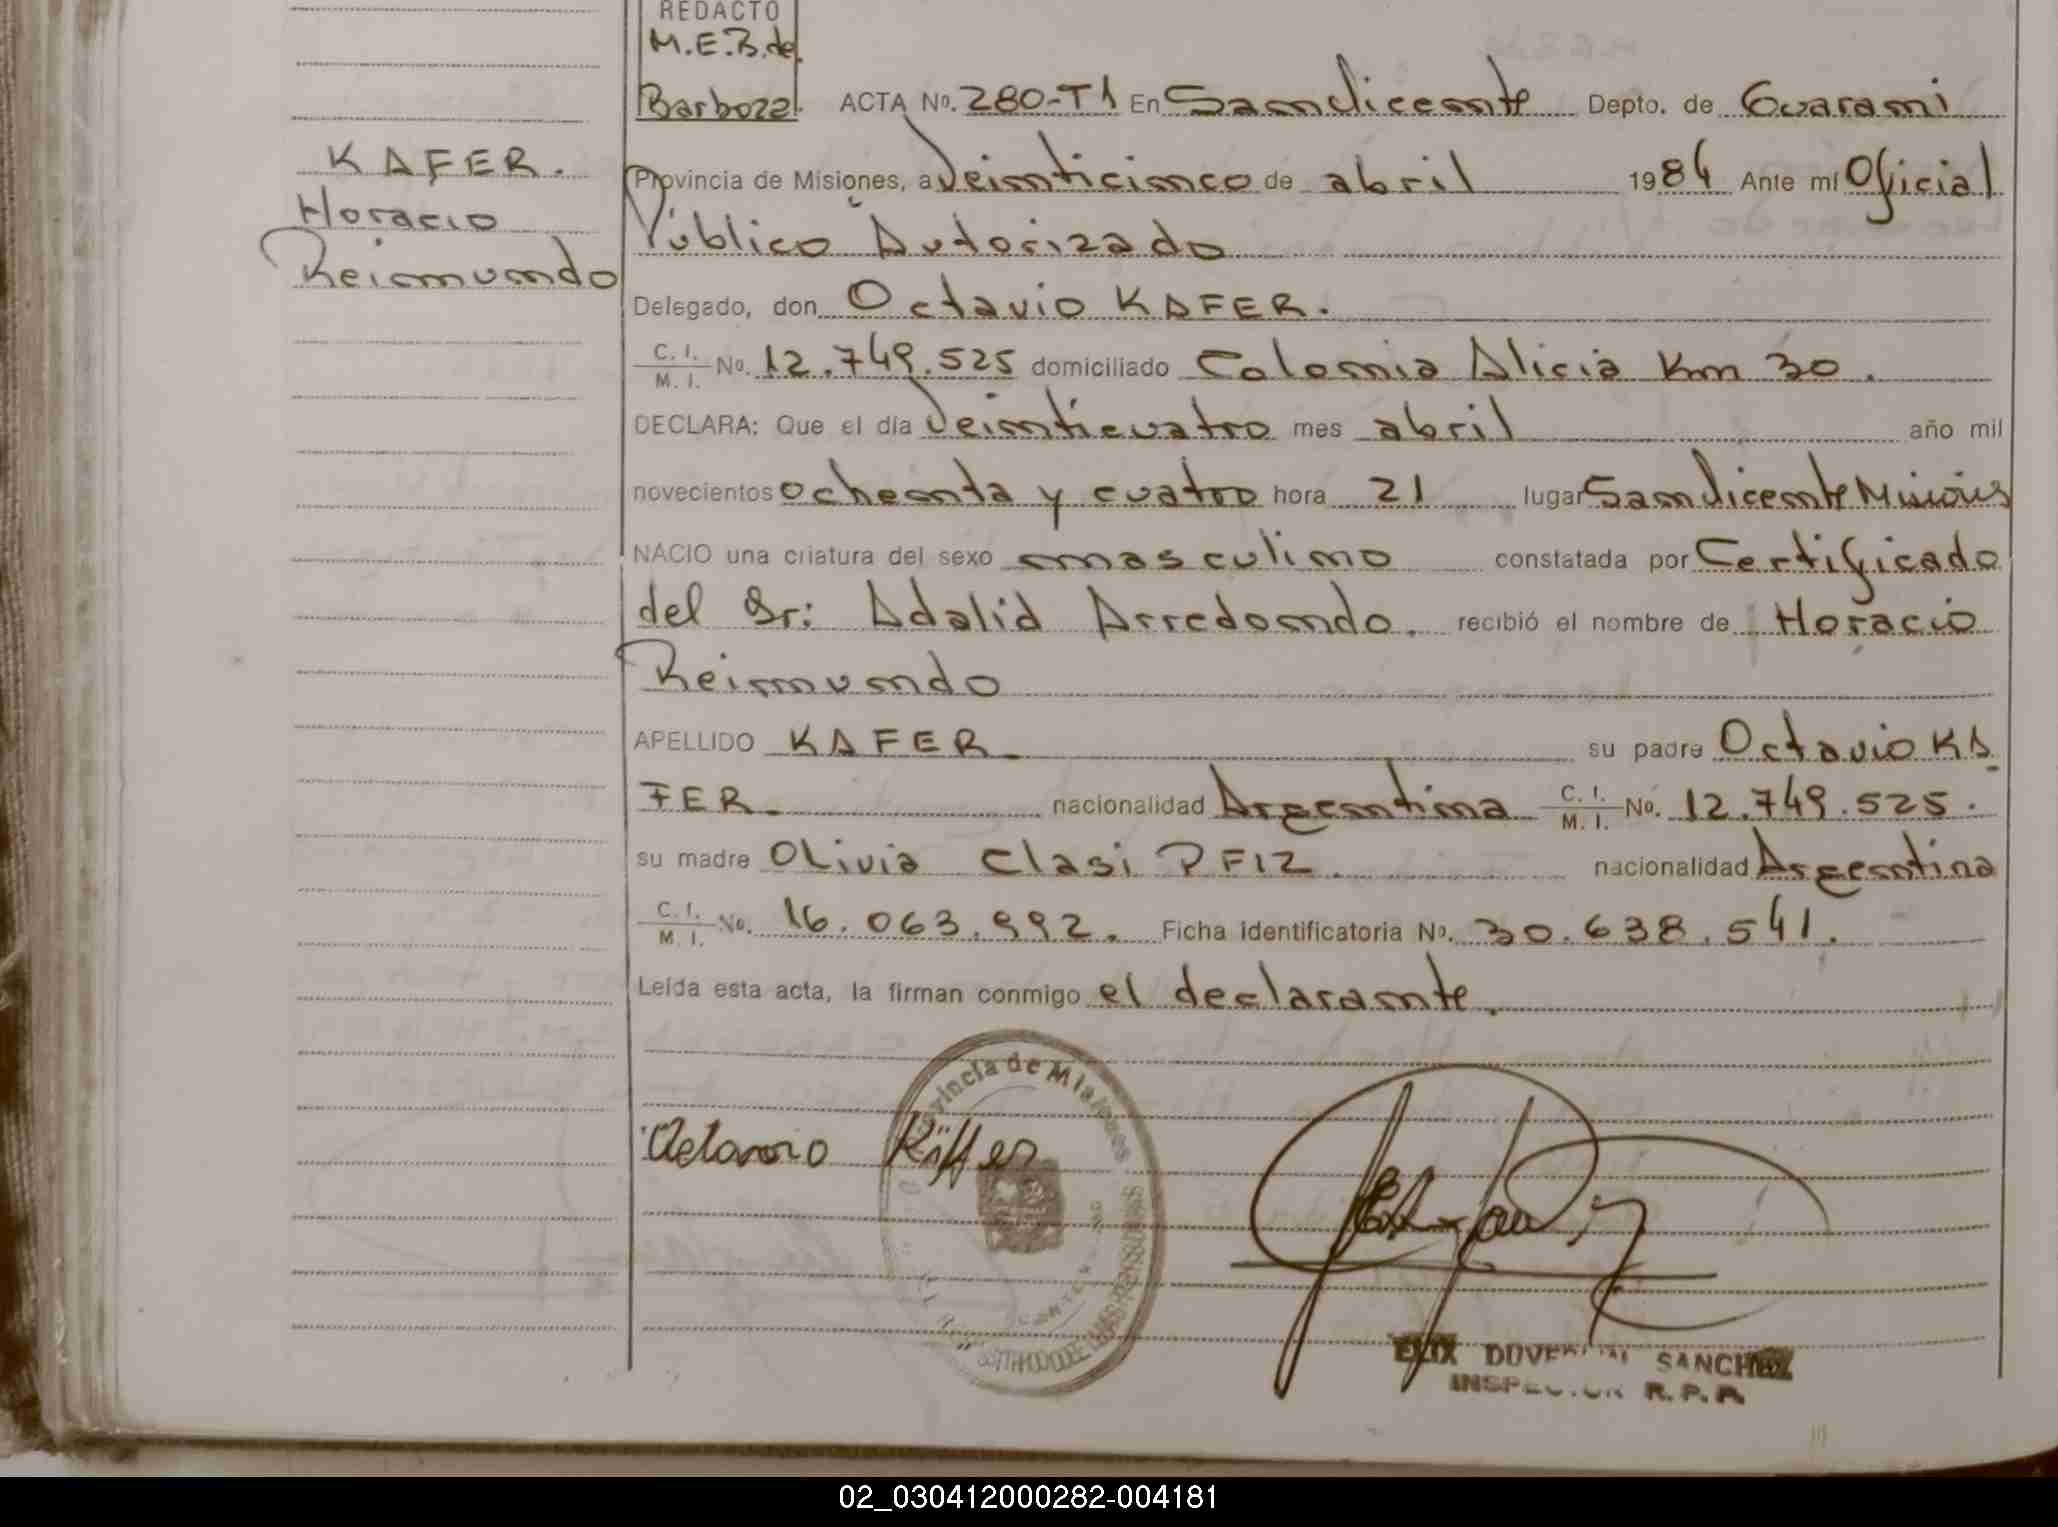 REDACTO
M.E.B. de
Barboza. ACTA No. 280-T1 En San Vicente Depto. de Guarani
KAFER. Provincia de Misiones, a Veinticinco de abril 1984 Ante mí Oficial
Horacio Público Autorizado
Reimundo
Delegado, don Octavio KAFER.
C. I. / M. I. No. 12.749.525 domiciliado Colonia Alicia Km 30.
DECLARA: Que el día Veinticuatro mes abril año mil
novecientos ochenta y cuatro hora 21 lugar San Vicente Misiones
NACIO una criatura del sexo masculino constatada por Certificado
del Sr: Adalid Arredondo. recibió el nombre de Horacio
Reimundo
APELLIDO KAFER su padre Octavio KA
FER. nacionalidad Argentina C. I. / M. I. No. 12.749.525.
su madre Olivia Clasi PFIZ. nacionalidad Argentina
C. I. / M. I. No. 16.063.992. Ficha identificatoria No. 30.638.541.
Leída esta acta, la firman conmigo el declarante.
Provincia de Misiones
SANCHEZ
INSPECTOR R. P. P.
02_030412000282-004181